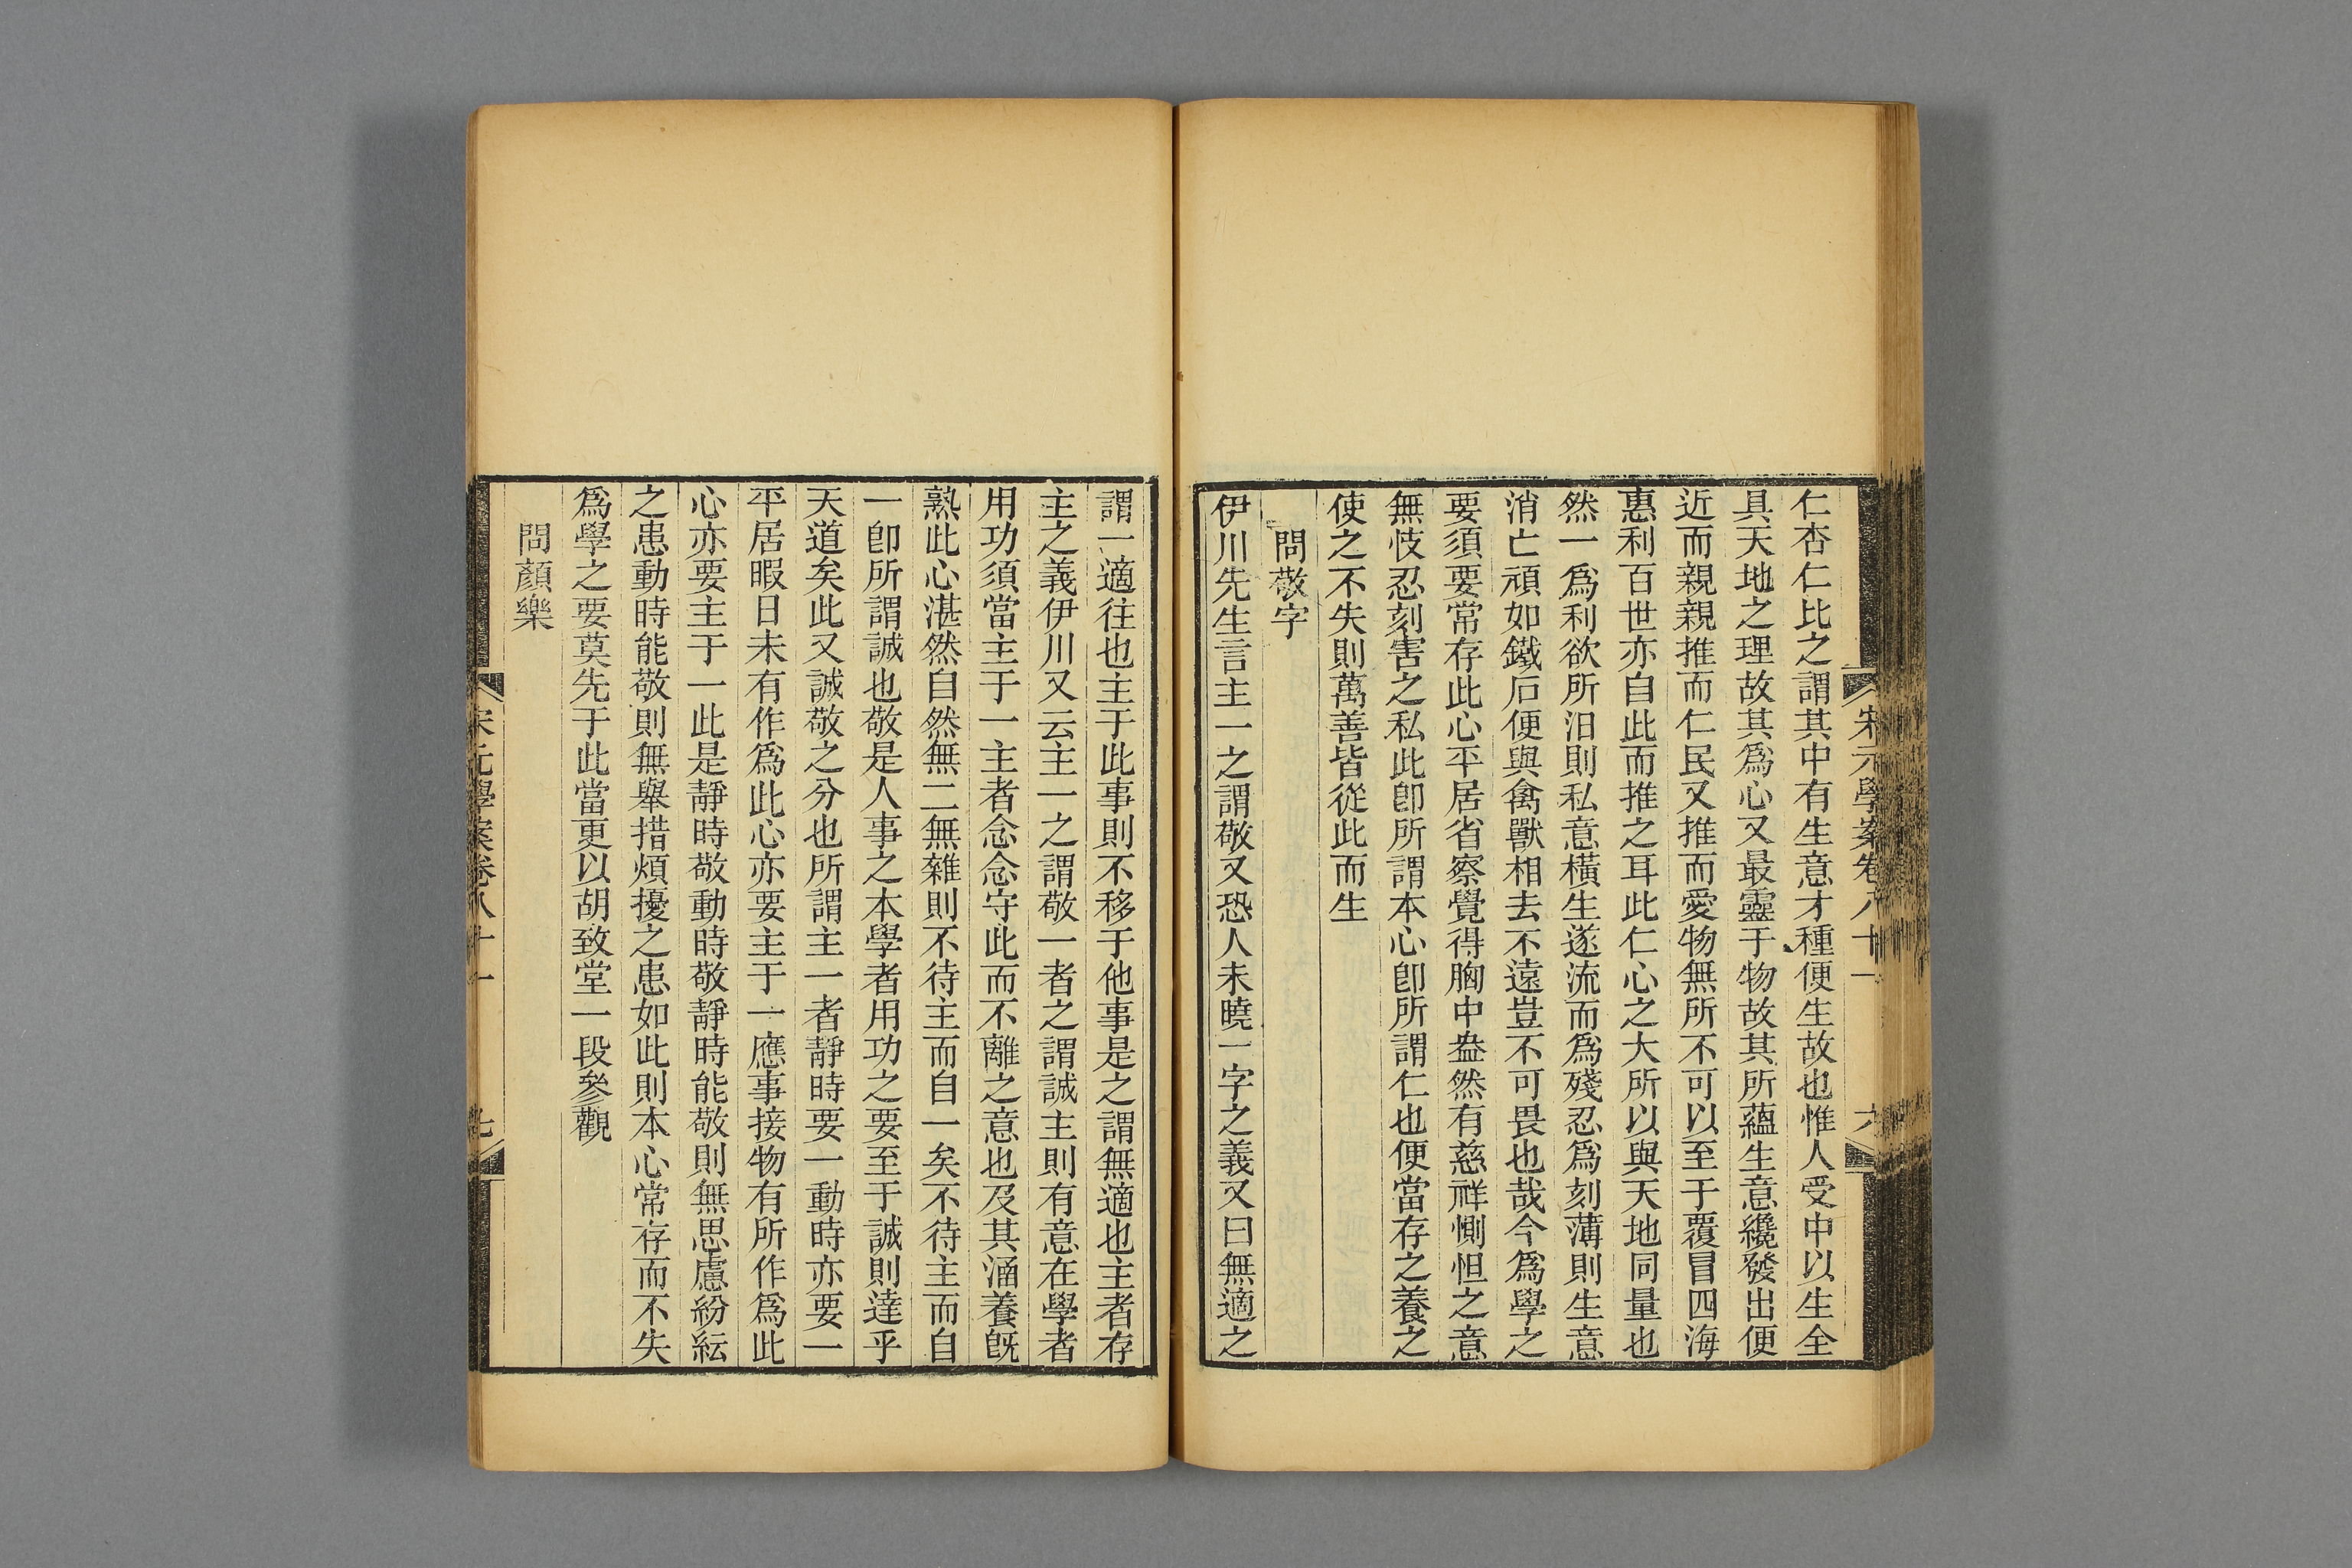 宋元學案卷八十一
六
仁杏仁比之謂其中有生意才種便生故也惟人受中以生全
具天地之理故其爲心又最靈于物故其所蘊生意纔發出便
近而親親推而仁民又推而愛物無所不可以至于覆冒四海
惠利百世亦自此而推之耳此仁心之大所以與天地同量也
然一爲利欲所汨則私意橫生遂流而爲殘忍爲刻薄則生意
消亡頑如鐵石便與禽獸相去不遠豈不可畏也哉今爲學之
要須要常存此心平居省察覺得胸中盎然有慈祥惻怛之意
無忮忍刻害之私此卽所謂本心卽所謂仁也便當存之養之
使之不失則萬善皆從此而生
問敬字
伊川先生言主一之謂敬又恐人未曉一字之義又曰無適之
謂一適往也主于此事則不移于他事是之謂無適也主者存
主之義伊川又云主一之謂敬一者之謂誠主則有意在學者
用功須當主于一主者念念守此而不離之意也及其涵養旣
熟此心湛然自然無二無雜則不待主而自一矣不待主而自
一卽所謂誠也敬是人事之本學者用功之要至于誠則達乎
天道矣此又誠敬之分也所謂主一者靜時要一動時亦要一
平居暇日未有作爲此心亦要主于一應事接物有所作爲此
心亦要主于一此是靜時敬動時敬靜時能敬則無思慮紛紜
之患動時能敬則無舉措煩擾之患如此則本心常存而不失
爲學之要莫先于此當更以胡致堂一段參觀
問顏樂
宋元學案卷八十一
七